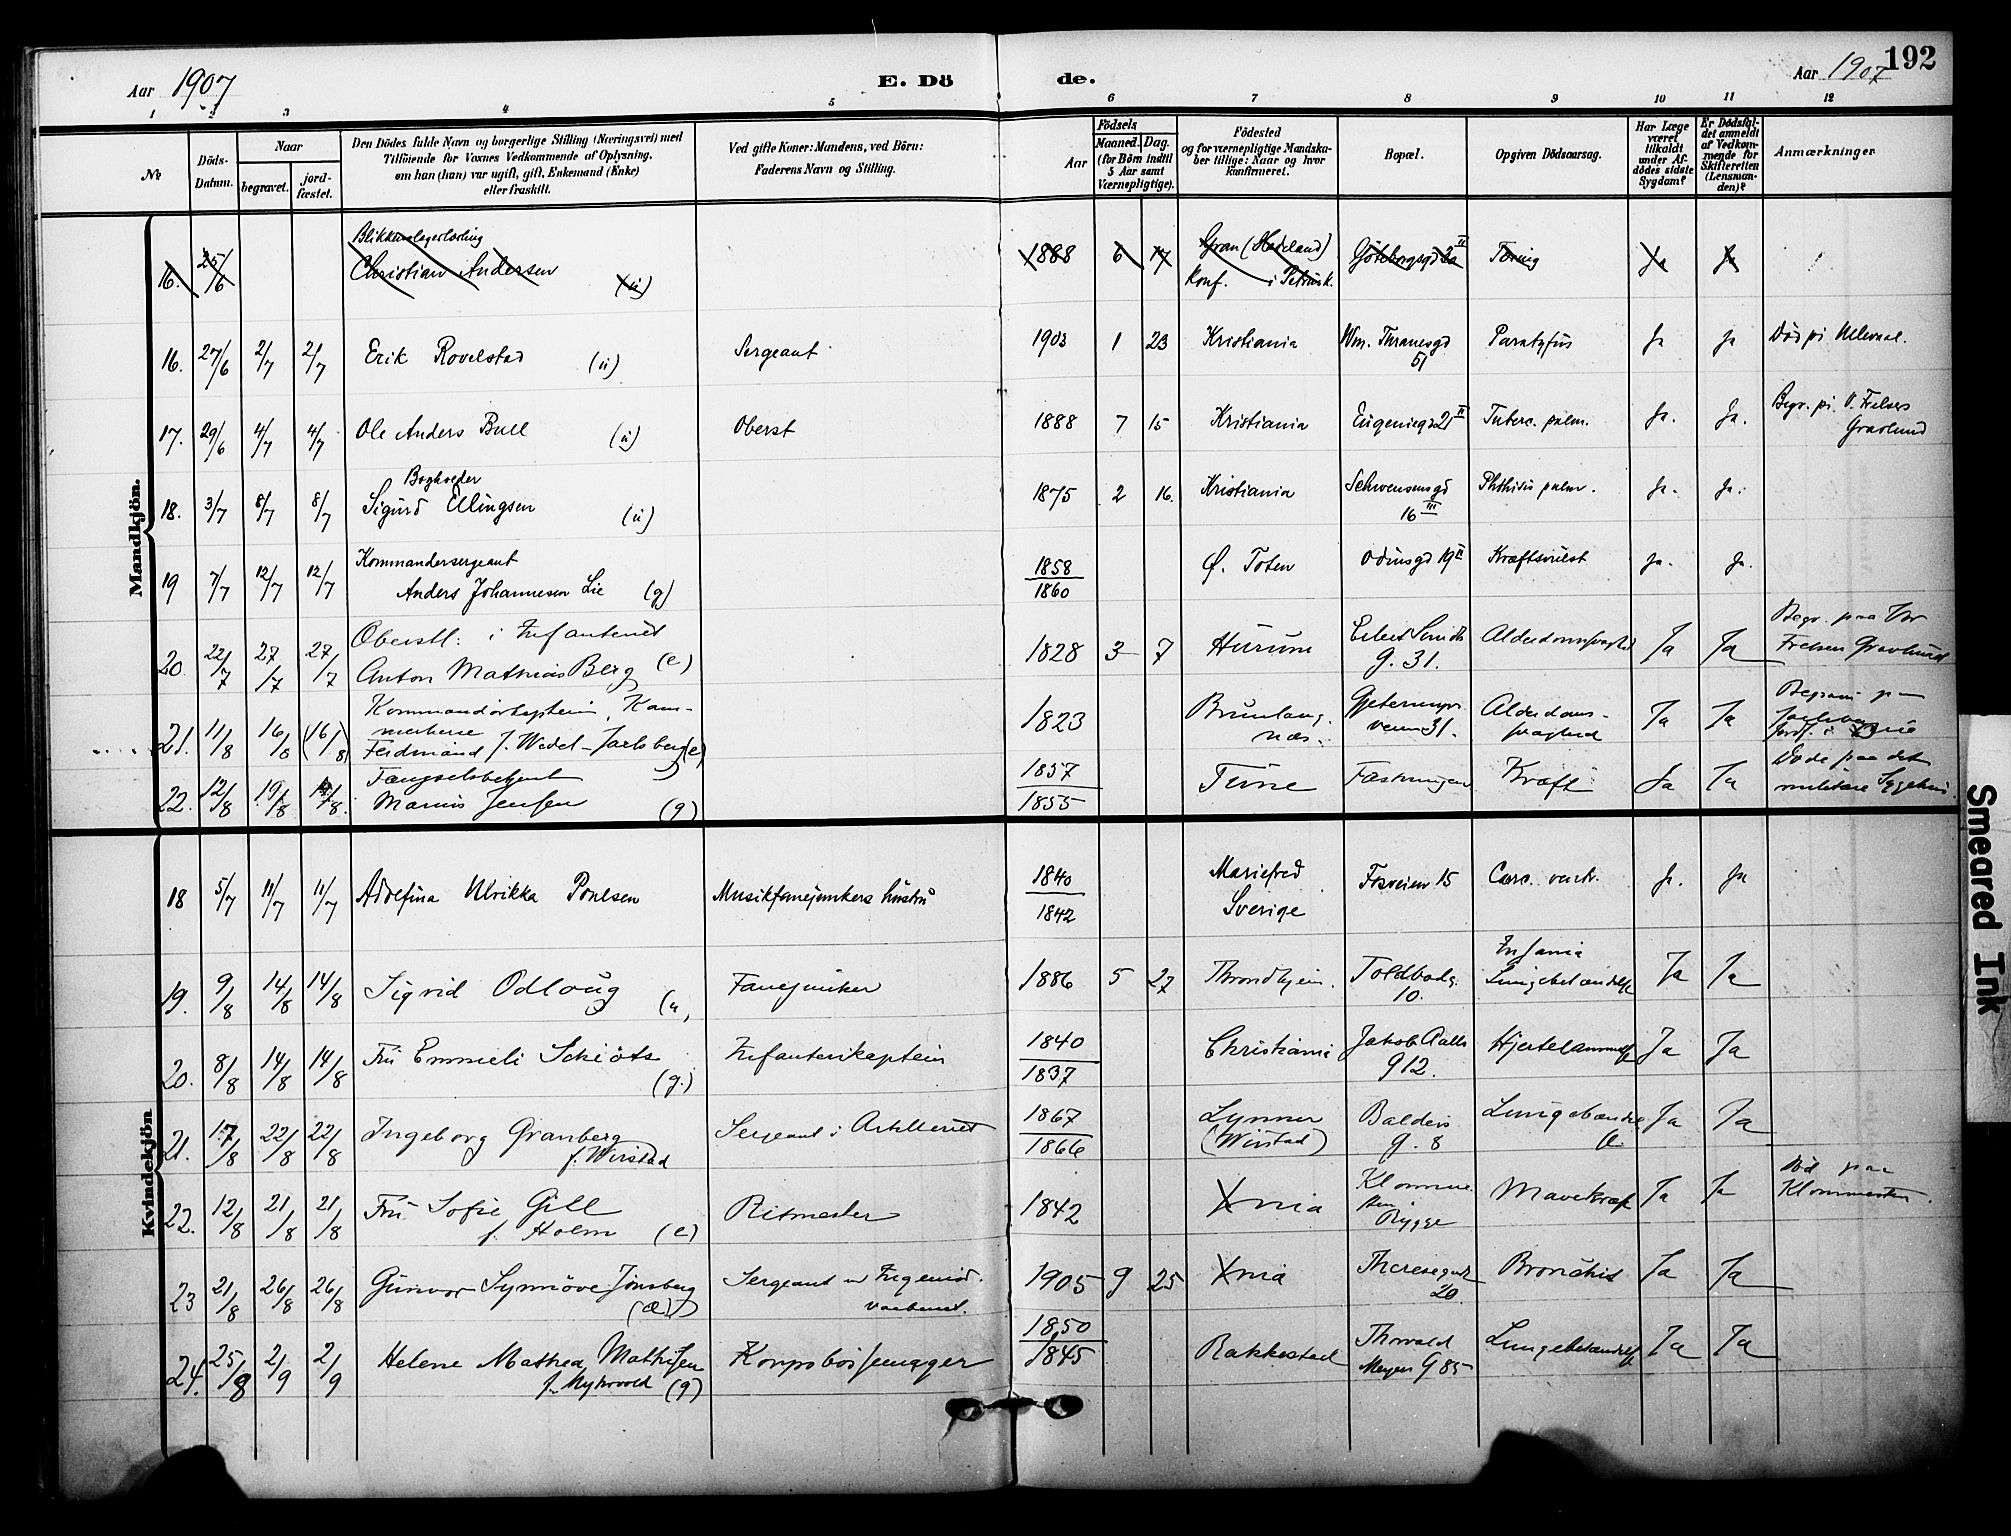 192
Aar 1907
E. Dö de.
Aar 1907
1 2 3 4 5 6 7 8 9 10 11 12
No
Döds-Datum.
Naar
begravet.
jord-fæstet.
Den Dödes fulde Navn og borgerlige Stilling (Næringsvei) med
Tilföiende for Voxnes Vedkommende af Oplysning,
om han (hun) var ugift, gift, Enkemand (Enke)
eller fraskilt.
Ved gifte Koner: Mandens, ved Börn:
Faderens Navn og Stilling.
Födsels
Aar
Maaned. Dag.
(for Börn indtil
5 Aar samt
Værnepligtige).
Födested
og for værnepligtige Mandska-
ber tillige: Naar og hvor
konfirmeret.
Bopæl.
Opgiven Dödsaarsag.
Har Læge
været
tilkaldt
under Af-
dödes sidste
Sygdom?
Er Dödsfal-
det anmeldt
af Vedkom-
mende for
Skifteretten
(Lensman-
den)?
Anmærkninger
Mandkjön.
Blikkenslagerlærling
16. 25/6 Christian Andersen (u) 1888 6 17 Gran (Hadeland) Göteborggd 2a II Tæring Ja Ja
Konf. i Petrusk.
16. 27/6 2/7 2/7 Erik Rovelstad (u) Sergeant 1903 1 23 Kristiania Wm. Thranesgd 51 Paratyfus Ja Ja Död på Ullevaal.
17. 29/6 4/7 4/7 Ole Anders Bull (u) Oberst 1888 7 15 Kristiania Eugeniegd 21 II Tuberc. pulm. Ja. Ja. Begr. på V. Frelsers Gravlund
Bogholder
18. 3/7 8/7 8/7 Sigurd Ellingsen (u) 1875 2 16. Kristiania Schwensensgd 16 III Phthisis pulm. Ja. Ja.
Kommandersergeant
19 7/7 12/7 12/7 Anders Johannesen Lie (g) 1858 1860 Ø. Toten Odinsgd 19 II Kræftsvulst Ja. Ja.
Oberstl. i Infanteriet
20. 22/7 27/7 27/7 Anton Mathias Berg (e) 1828 3 7 Hurum Eilert Sundts g. 31. Alderdomssvaghed Ja Ja Begr. paa Vor Frelsers Gravlund
Kommandörkaptein, Kam-
merherre
21. 11/8 16/8 (16/8) Ferdinand J. Wedel-Jarlsberg (e) 1823 Brunlanæs. 31. Alderdoms-svaghed Ja Ja
Fængselsbetjent
22. 12/8 19/8 19/8. Marius Jensen (g) 1857 1855 Tune Fæstningen Kræft Ja Ja Döde paa det militære Sygehus
Kvindekjön
18 5/7 11/7 11/7 Adolfina Ulrikka Poulsen Musikfanejunkers hustru 1840 1842 Mariefred Sverige Fosveien 15 Carc. ventr. Ja. Ja
19. 9/8 14/8 14/8 Sigrid Odloug (u) Fanejunker 1886 5 27 Throndhjem. Toldbodg. 10. Lungebetændelse Ja Ja
20. 8/8 14/8 14/8 Fru Emmeli Schiöts (g.) Infanterikaptein 1840 1837 Christiania Jakob Aalls g 12. Hjertelammelse Ja Ja
21. 17/8 22/8 22/8 Ingeborg Granberg f. Wirstad Sergeant i Artilleriet 1867 1866 Lynner (Wirstad) Balders g. 8 Ja Ja
22. 12/8 21/8 21/8 Fru Sofie Gill f. Holm (e) Ritmester 1842 Xnia Rygge Mavekræft Ja Ja Död paa
23 21/8 26/8 26/8 Gunvor Synnöve Jonsberg Sergeant v Ingeniör-vaabenet. 1905 9 25 Xnia Theresegt 20 Bronchit Ja Ja
24. 25/8 2/9 2/9 Helene Mathea Mathisen f. Myhrvold (g) Korpsbössemager 1850 1845 Rakkestad Thorvald Meyers G 85 Lungebetændelse Ja Ja
Smeared Ink